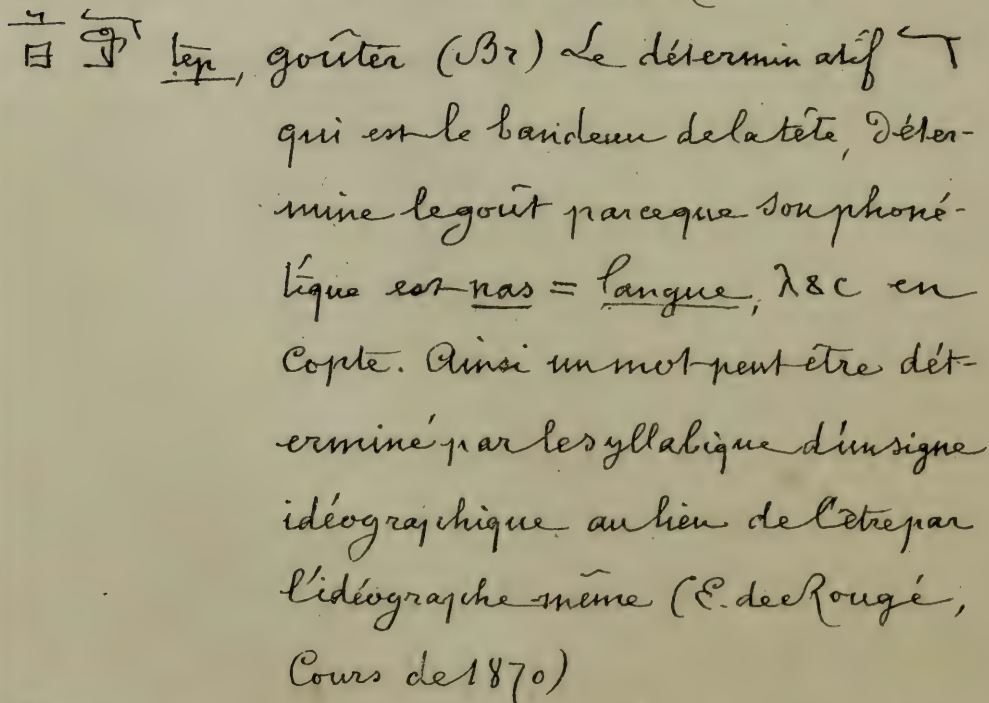 tep, goûter (Br) Le déterminatif
qui est le bandeau de la tête, déter-
mine le goût parceque son phoné-
tique est nas = langue, λⲁⲥ en
Copte. Ainsi un mot peut être dét-
erminé par le syllabique d'un signe
idéographique au lieu de l'être par
l'idéographe même (E. de Rougé,
Cours de 1870)